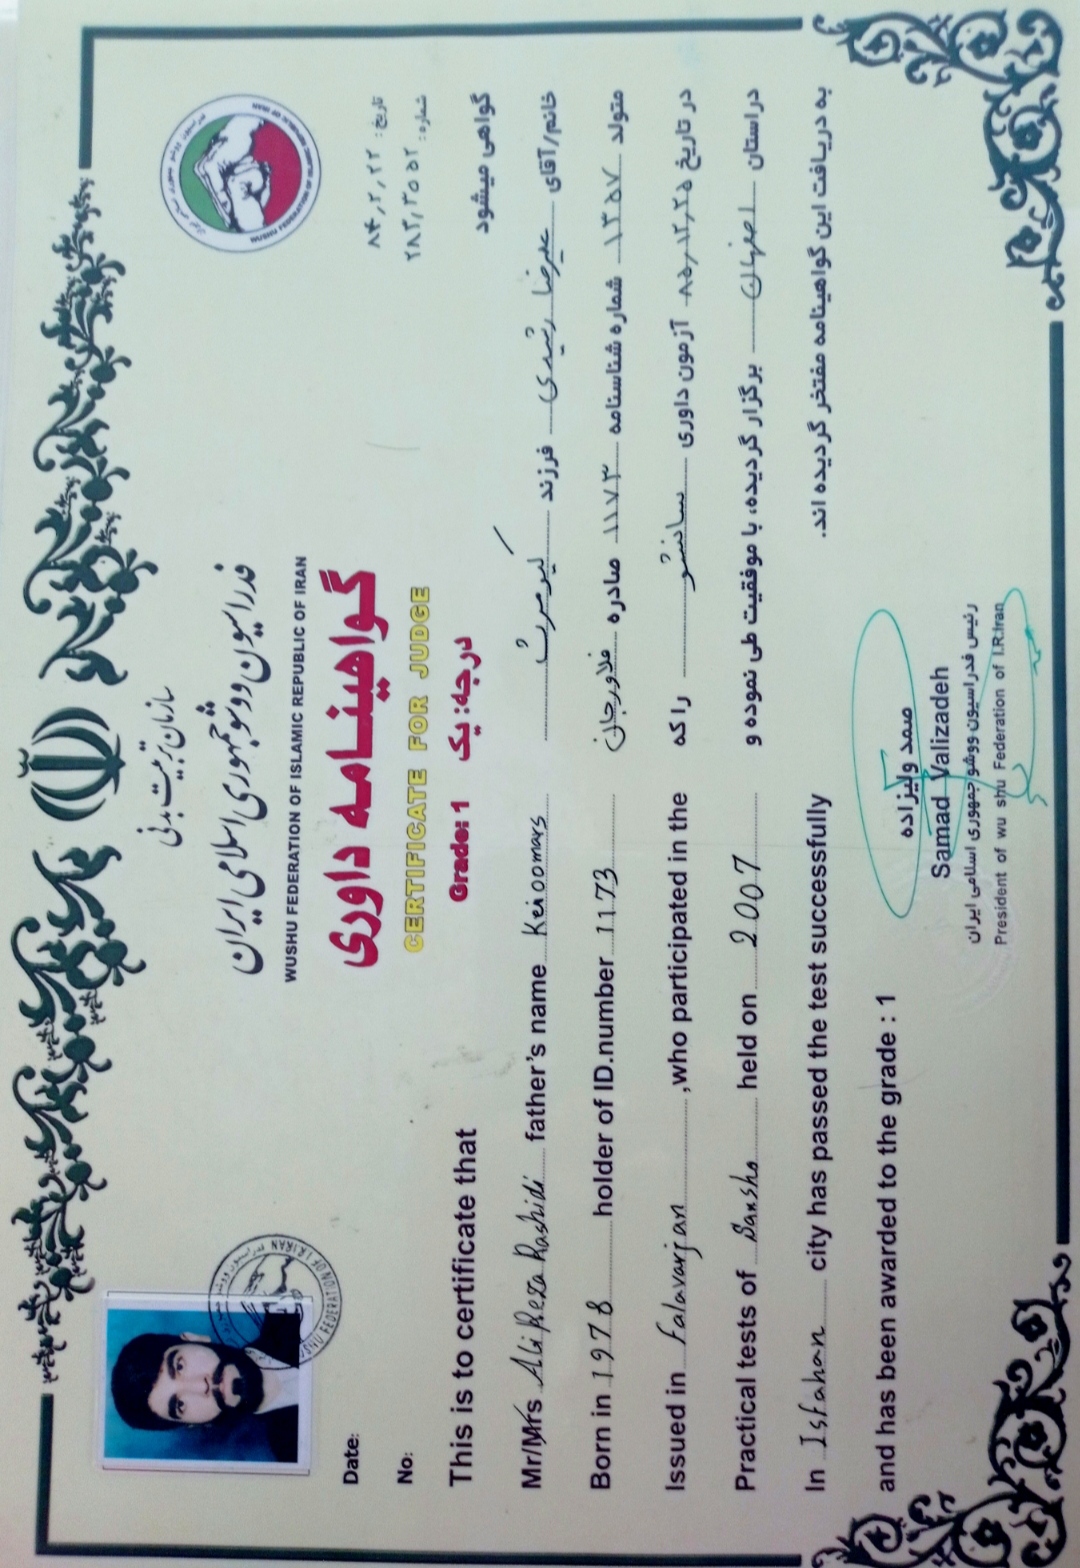 سازمان تربیت بدنی
فدراسیون ووشو جمهوری اسلامی ایران
WUSHU FEDERATION OF ISLAMIC REPUBLIC OF IRAN
گواهینامه داوری
CERTIFICATE FOR JUDGE
Grade: 1 درجه: یک
تاریخ:
شماره:
Date:
No:
گواهی میشود
خانم/آقای علیرضا رشیدی فرزند کیومرث
متولد ۱۳۵۷ شماره شناسنامه ۱۱۷۳ صادره فلاورجان
را که در تاریخ ۸۵,۱۲,۲۵ آزمون داوری ساندا
دراستان اصفهان برگزار گردیده، با موفقیت طی نموده و
به دریافت این گواهینامه مفتخر گردیده اند.
This is to certificate that
Mr/Mrs Ali Reza Rashidi father's name Keioomars
Born in 1978 holder of ID.number 1173
Issued in Falavarjan ,who participated in the
Practical tests of Sansho held on 2007
In Isfahan city has passed the test successfully
and has been awarded to the grade : 1
صمد ولیزاده
Samad Valizadeh
رئیس فدراسیون ووشو جمهوری اسلامی ایران
President of wu shu Federation of I.R.Iran